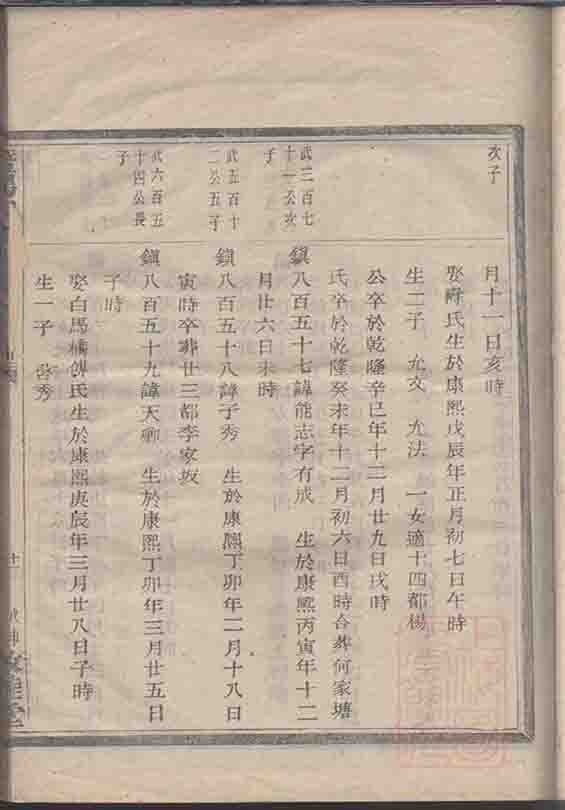 次子
月十一日亥時
娶薛氏生於康熙戊辰年正月初七日午時
生二子 允文 允法 一女適十四都楊
公卒於乾隆辛巳年十二月廿九日戌時
氏卒於乾隆癸未年十二月初六日酉時合葬何家塘
武三百七
十一公次
子
鎮八百五十七諱能志字有成 生於康熙丙寅年十二
月廿六日未時
武五百十
二公五子
鎮八百五十八諱子秀 生於康熙丁卯年二月十八日
寅時卒葬廿三都李家坂
武六百五
十四公長
子
鎮八百五十九諱天卿 生於康熙丁卯年三月廿五日
子時
娶白馬橋傅氏生於康熙庚辰年三月廿八日子時
生一子 啓秀